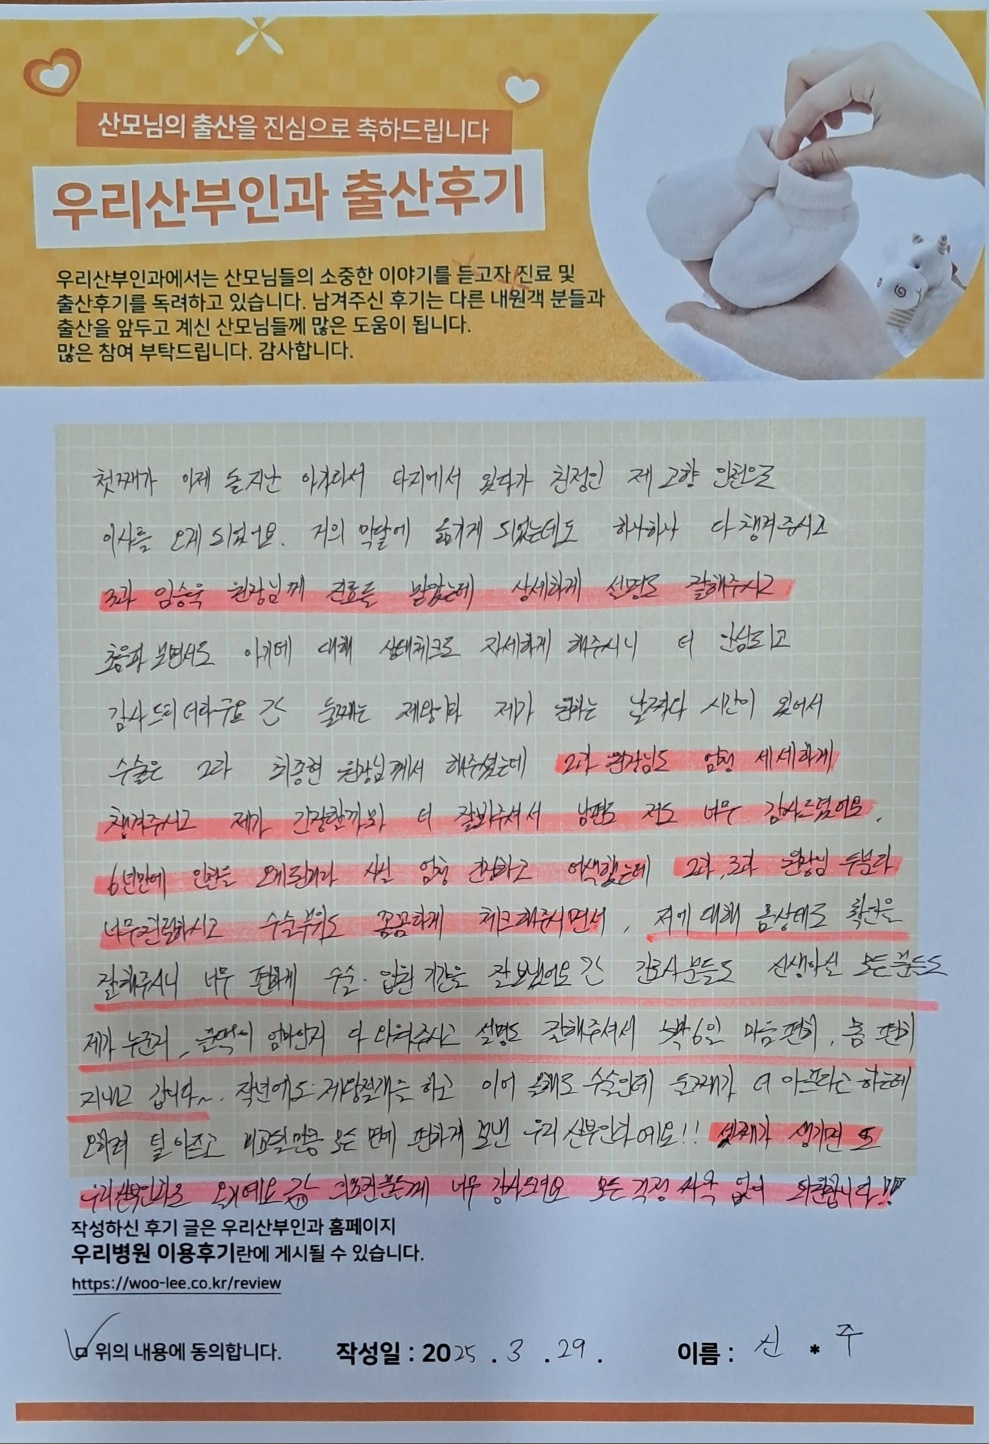 산모님의 출산을 진심으로 축하드립니다
우리산부인과 출산후기
우리산부인과에서는 산모님들의 소중한 이야기를 듣고자 진료 및
출산후기를 독려하고 있습니다. 남겨주신 후기는 다른 내원객 분들과
출산을 앞두고 계신 산모님들께 많은 도움이 됩니다.
많은 참여 부탁드립니다. 감사합니다.
첫째가 이제 돌 지난 아기라서 타지에서 있다가 친정인 제 고향 인천으로
이사를 오게 되었어요. 거의 막달에 옮기게 되었는데도 하나하나 다 챙겨주시고
3과 임승욱 원장님께 진료를 받았는데 상세하게 설명도 잘해주시고
초음파 보면서도 아기에 대해 상태체크도 자세하게 해주시니 더 안심되고
감사드리더라구요 둘째는 제왕이라 제가 원하는 날짜다 시간이 있어서
수술은 2과 최종현 원장님께서 해주셨는데 2과 원장님도 엄청 세세하게
챙겨주시고 제가 긴장할까봐 더 잘봐주셔서 남편도 저도 너무 감사드렸어요.
6년만에 인천을 오게된거라 사실 엄청 긴장하고 어색했는데 2과, 3과 원장님 두분다
너무친절하시고 수술부위도 꼼꼼하게 체크해주시면서, 저에 대해 몸상태도 확인을
잘해주시니 너무 편하게 수술·입원 기간을 잘 보냈어요 간호사분들도 신생아실 모든분들도
제가 누군지, 엄마인지 다 알려주시고 설명도 잘해주셔서 5박6일 마음 편히, 몸 편히
지내고 갑니다~. 작년에도 제왕절개를 하고 이어 올해도 수술인데 둘째가 더 아프다고 하는데
오히려 덜 아프고 모든 면에 편하게 보낸 우리 산부인과에요!! 셋째가 생기면 또
우리산부인과로 올거에요 의료진분들께 너무 감사드려요 모든 걱정 싸악 없이 퇴원합니다!!
작성하신 후기 글은 우리산부인과 홈페이지
우리병원 이용후기란에 게시될 수 있습니다.
https://woo-lee.co.kr/review
위의 내용에 동의합니다. 작성일 : 2025 . 3 . 29 . 이름 : 신 * 주